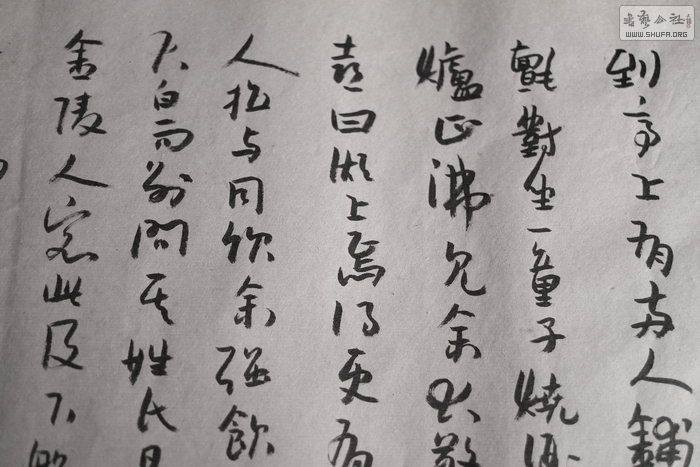 書藝公社
WWW.SHUFA.ORG
到亭上有两人鋪
氈對坐一童子燒酒
爐正沸見余大
喜曰湖上焉得更有
人拉与同飲余强飲
大白而别問其姓氏
金陵人客此及下船